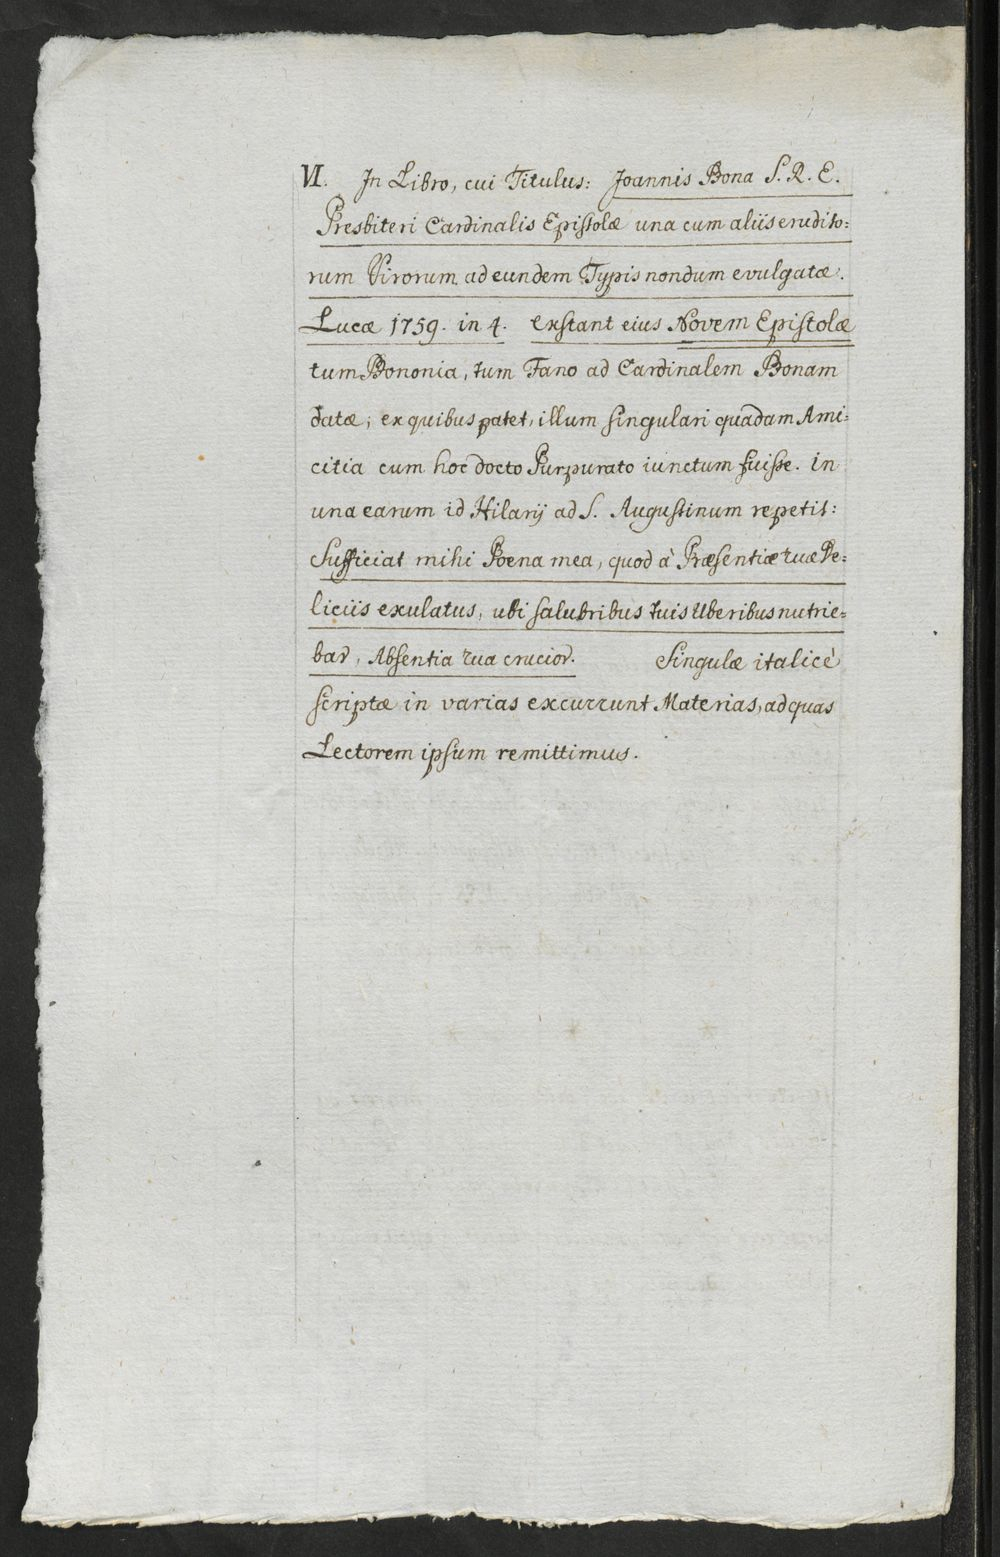 VI. In Libro, cui Titulus: Joannis Bona S. R. E.
Presbiteri Cardinalis Epistolæ una cum aliis erudito=
rum Virorum ad eundem Typis nondum evulgatæ.
Lucæ 1759. in 4. exstant eius Novem Epistolæ
tum Bononia, tum Fano ad Cardinalem Bonam
datæ; ex quibus patet, illum singulari quadam Ami=
citia cum hoc docto Purpurato iunctum fuisse. In
una earum id Hilarij ad S. Augustinum repetit:
Sufficiat mihi Poena mea, quod à Præsentiæ tuæ De=
liciis exulatus, ubi salubribus tuis Uberibus nutrie=
bar, Absentia tua crucior. Singulæ italicè
scriptæ in varias excurrunt Materias, ad quas
Lectorem ipsum remittimus.